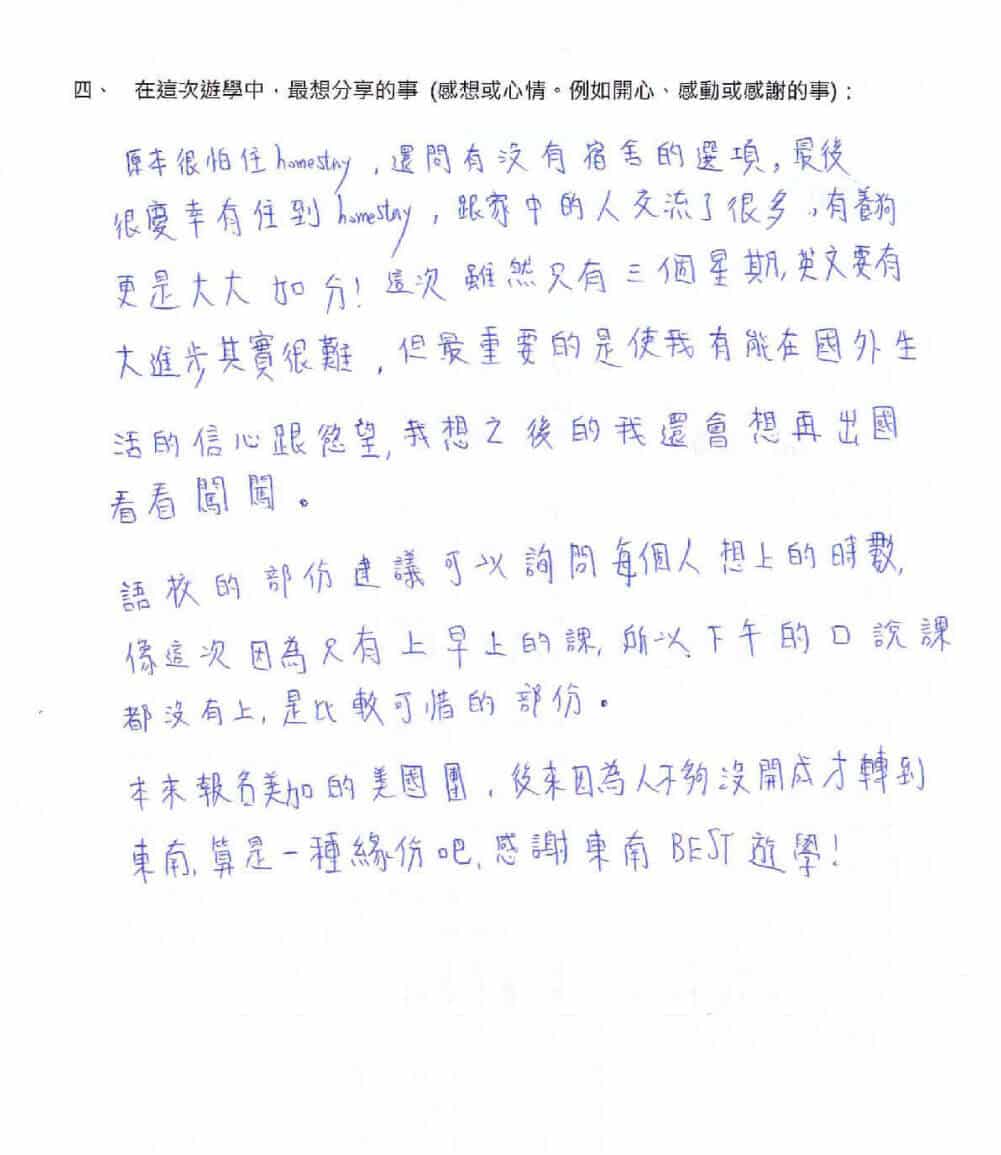 四、 在這次遊學中，最想分享的事 (感想或心情。例如開心、感動或感謝的事)：
原本很怕住homestay，還問有沒有宿舍的選項，最後
很慶幸有住到homestay，跟家中的人交流了很多，有養狗
更是大大加分！這次雖然只有三個星期，英文要有
大進步其實很難，但最重要的是使我有能在國外生
活的信心跟慾望，我想之後的我還會想再出國
看看闖闖。
語校的部份建議可以詢問每個人想上的時數，
像這次因為只有上早上的課，所以下午的口說課
都沒有上，是比較可惜的部份。
本來報名美加的美國團，後來因為人不夠沒開成才轉到
東南，算是一種緣份吧，感謝東南BEST遊學！